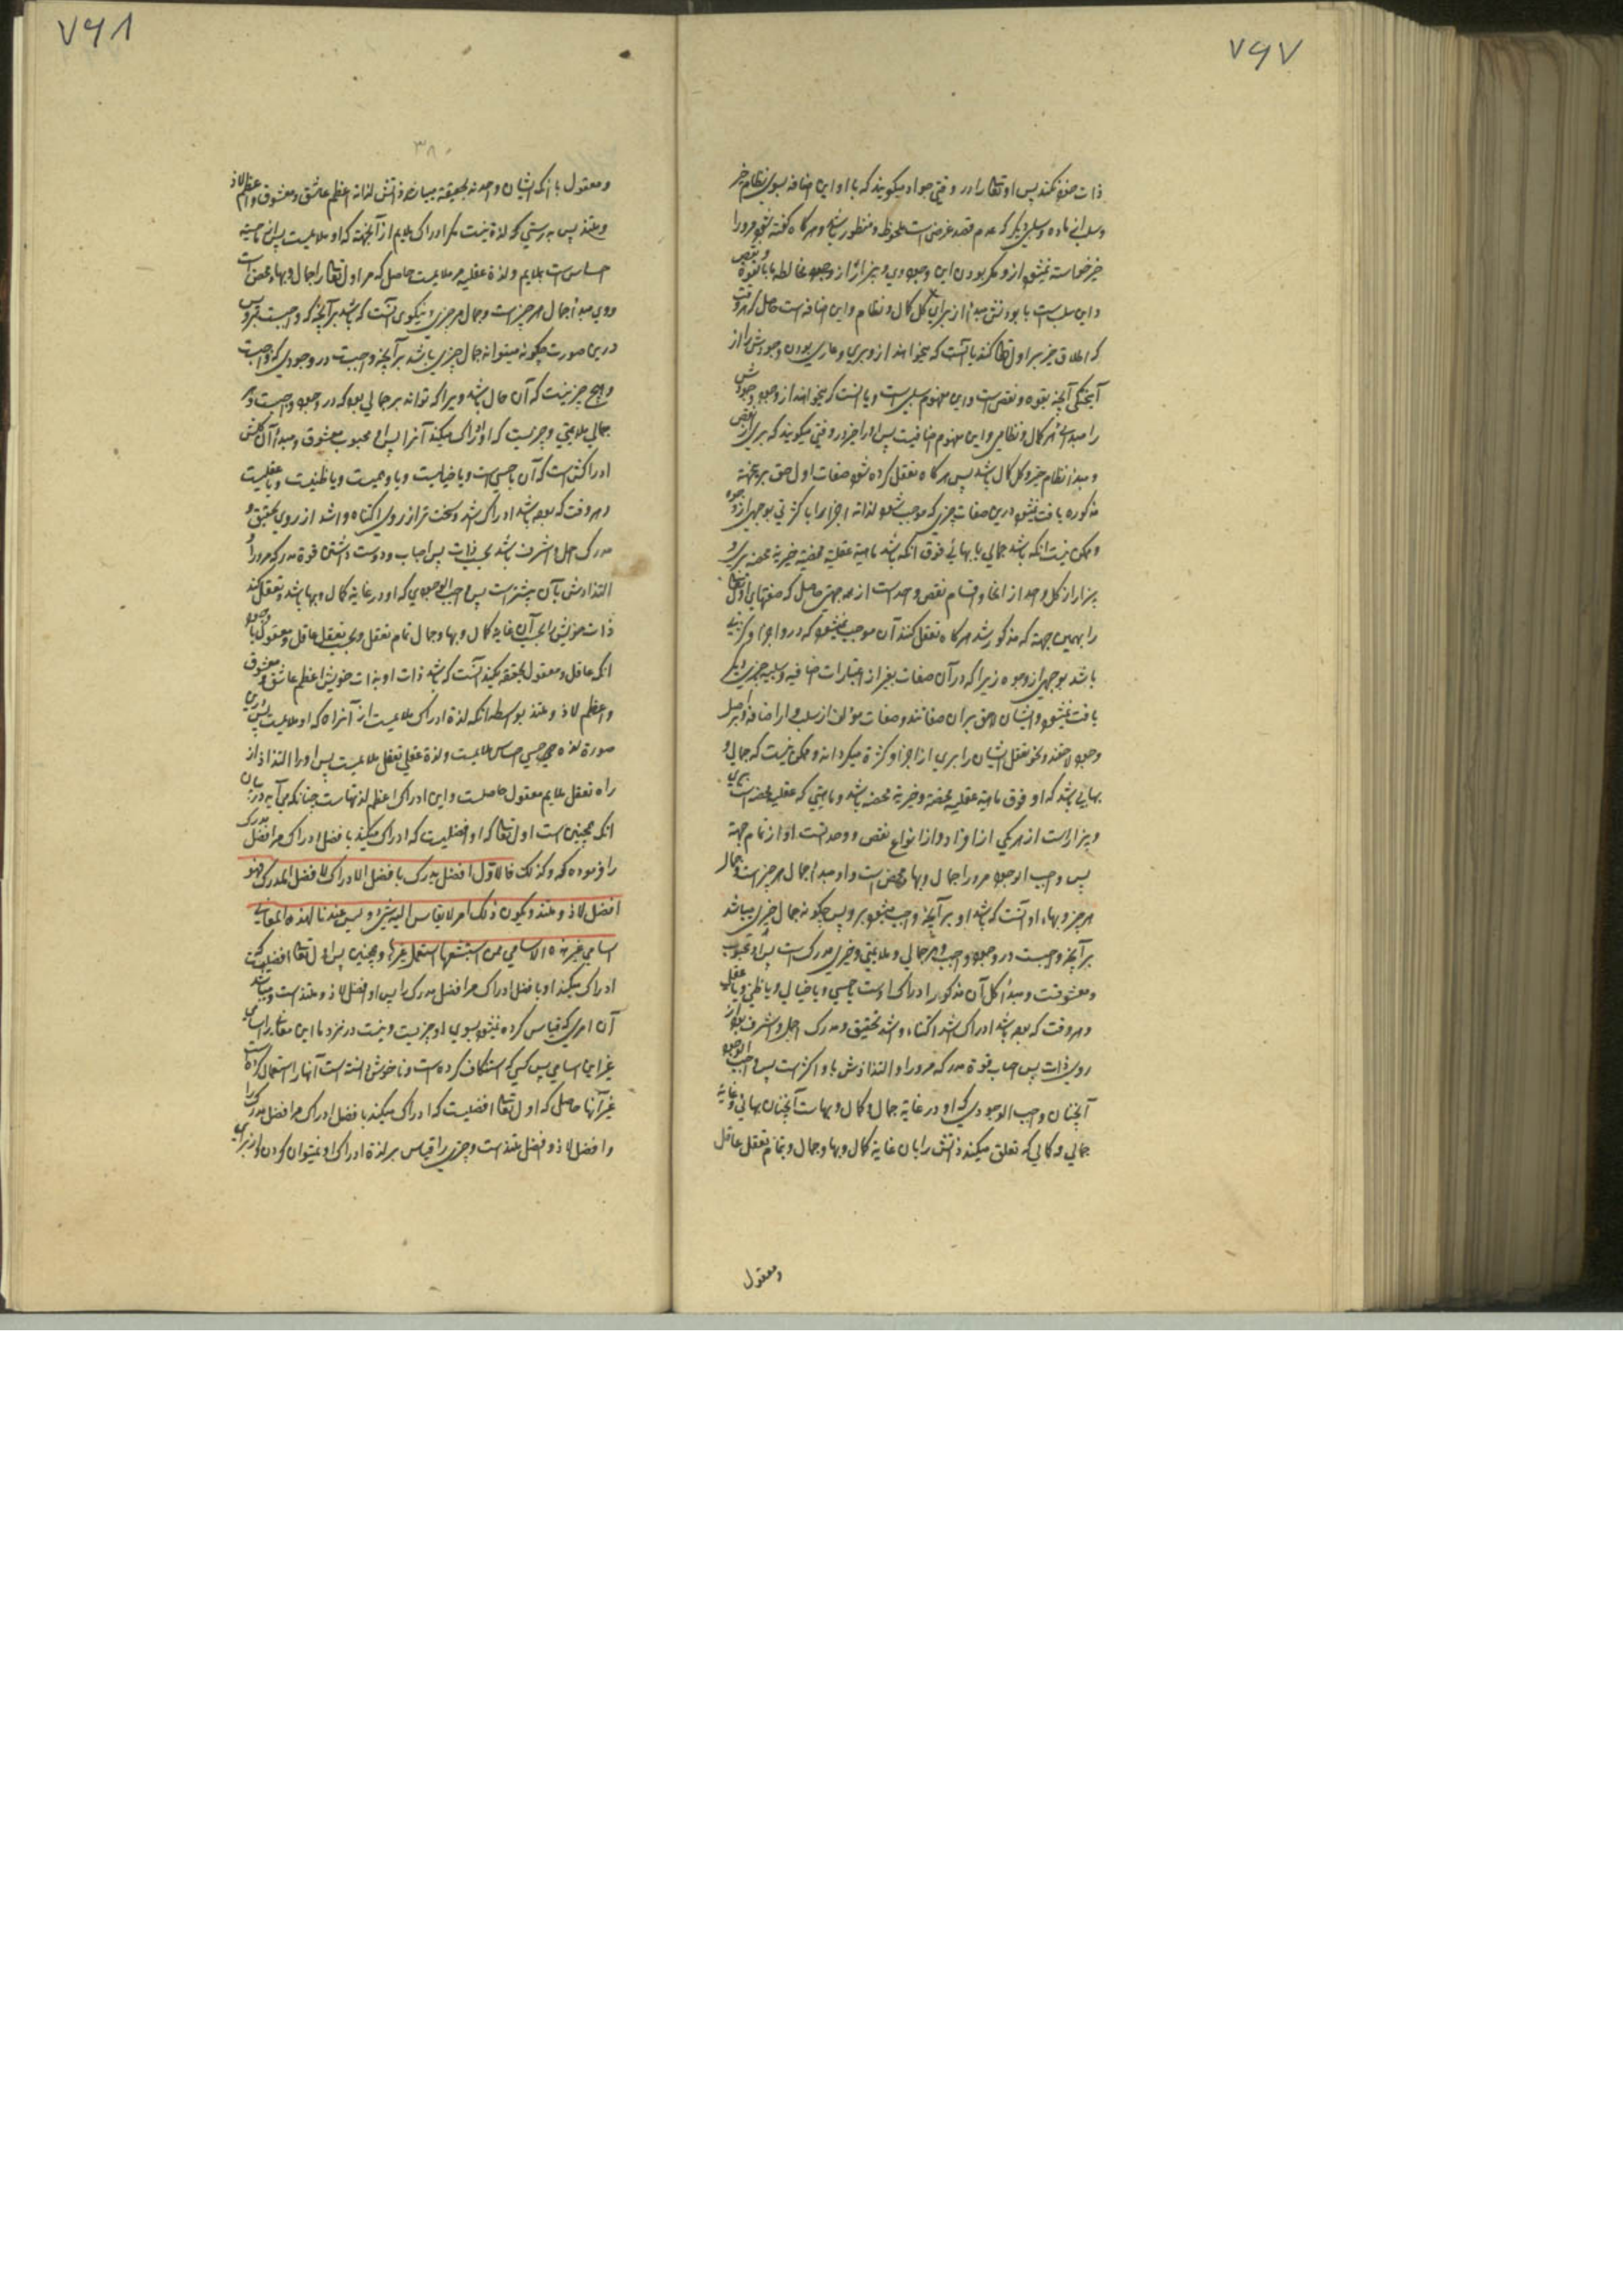 ۷۶۷
ذات خود نکند پس او تعالی را در وقتی جواد میگویند که با او این اضافه بسوی نظام خیر
خیر خواسته نمیشود از و مگر بودن این وجود وی و بیزار از وجود مخالطه با بالقوه و نقص
و این سلب است با بودنش مبدأ از برای کل کمال و نظام و این اضافه است حاصل که هر وقت
که اطلاق خیر بر اول تعالی کنند یا آنست که میخواهند از و بری و عاری بودن وجودش را از
آمیختگی آنچه بقوه و نقص است و این مفهوم سلبی است و یا آنست که میخواهند از وجود وجودش
را مبدأ هر کمال و نظامی و این مفهوم اضافیست پس او را خیر در وقتی میگویند که بری از نقص
و مبدأ نظام خیر و کل کمال باشد پس هرگاه تعقل کرده شود صفات اول حق برین جهة
مذکوره یافت نمیشود درین صفات چیزی که موجب شود لذاته اجزا را یا کثرتی بوجهی از وجوه
و ممکن نیست انکه باشد جمالی یا بهائی فوق انکه باشد ماهیة عقلیة محضه خیریة محضه بری و
بیزار از کل واحد از انحا و اقسام نقص واحد است از همه جهتی حاصل که صفتهای اول تعالی
را بهمین جهة که مذکور شد هرگاه تعقل کنند آن موجب نمیشود که در و اجزا و کثرتی
باشد بوجهی از وجوه زیرا که در آن صفات بغیر از اعتبارات اضافیه و سلبیه چیزی دیگر
یافت نمیشود
بهایی باشد که او فوق ماهیة عقلیه محضه و خیریة محضه باشد و ماهیتی که عقلیه محضه است بری
و بیزار است از هر یکی از افراد و از انواع نقص و وحدتست او از تمام جهة
پس واجب الوجود مر ورا جمال و بهاء محض است و او مبدأ جمال هر چیز است و جمال
هر چیز و بهاء او آنست که باشد او بر آنچه واجب میشود برو پس چگونه جمال چیزی میباشد
بر آنچه واجبست در وجود واجب و هر جمالی و ملایمتی و خیری مدرک است پس او محبوب
و معشوقست و مبدأ کل آن مذکور ادراک اوست یا حسی و یا خیالی و یا ظنی و یا عقلی
و هر وقت که بوده باشد ادراک اشد اکتناه و اشد تحقیق و مدرک اجمل و اشرف بود از
روی ذات پس احباب قوة مدرکه مر ورا و التذاذش باو اکثر است پس واجب الوجود
آنچنان واجب الوجودی که او در غایة جمال و کمال و بهاست آنچنان بهائی و غایة
جمالی و کمالی که تعقل میکند ذاتش را بان غایة کمال و بها و جمال و بتمام تعقل عاقل
و معقول
۷۶۸
۳۸۰
و معقول با انکه ایشان واحدند بحقیقة میباشد ذاتش لذاته اعظم عاشق و معشوق و اعظم لاذ
و ملتذ پس بدرستی که لذة نیست مگر ادراک ملایم از آنجهة که او ملایمست پس لذة حسیه
احساس است بملایم و لذة عقلیه مر ملایمست حاصل که مر اول تعالی را جمال و بهاء محض است
و وی مبدأ جمال هر چیز است و جمال هر چیزی و نیکوی آنست که باشد بر آنچه که واجبست برو پس
درین صورت چگونه میتواند جمال چیزی باشد بر آنچه واجبست در وجودی که واجبست
و هیچ چیز نیست که آن حال باشد ویرا که تواند بر جمالی بود که در وجود واجبست و هر
جمالی ملایمتی و خیریست که او ادراک میکند آنرا پس او محبوب معشوق و مبدأ آن کلش
ادراکش است که آن یا حسی است و یا خیالیست و یا وهمیست و یا ظنیست و یا عقلیست
و هر وقت که بوده باشد ادراک اشد و سخت تر از روی اکتناه و اشد از روی تحقیق و
مدرک اجمل و اشرف باشد بحسب ذات پس احباب و دوست داشتن قوة مدرکه مر ورا و
التذاذش بآن بیشتر است پس واجب الوجودی که او در غایة کمال و بها باشد و تعقل کند
ذات خویش را بحسب آن غایة کمال و بها و جمال تمام تعقل و بحسب تعقل عاقل و معقول با وجود
انکه عاقل و معقول بحقیقة یکیند آنست که باشد ذات او بذات خویش اعظم عاشق و معشوق
و اعظم لاذ و ملتذ بواسطه انکه لذة ادراک ملایمست از آنراه که او ملایمست پس درین
صورة لذه حسی احساس ملایمست و لذة عقلی تعقل ملایمست پس او را التذاذ از
راه تعقل ملایم معقول حاصلست و این ادراک اعظم لذتهاست چنانکه می آید در بیان
انکه همچنین است اول تعالی که او افضلیست که ادراک میکند بافضل ادراک مر افضل مدرک
را فرموده که و کذلک فالاول افضل مدرک بافضل الادراک لافضل المدرک فهو
افضل لاذ و ملتذ و یکون ذلک امر لا یقاس الیه شیئ و لیس عندنا لهذه المعانی
اسامی غیر هذه الاسامی فمن استبشعها استعمل غیرها و همچنین پس اول تعالی افضلیست که
ادراک میکند او بافضل ادراک مر افضل مدرک را پس او افضل لاذ و ملتذ است و میباشد
آن امری که قیاس کرده نمیشود بسوی او چیزیست و نیست در نزد ما این معانی را اسامی
غیر این اسامی پس کسی که استنکاف کرده است و ناخوش دانسته است آنها را استعمال کرده است
غیر آنها حاصل که اول تعالی افضلیست که ادراک میکند بافضل ادراک مر افضل مدرک را
و افضل لاذ و افضل ملتذ است و چیزی را قیاس بر لذة ادراک او نمیتوان کردن و از برای